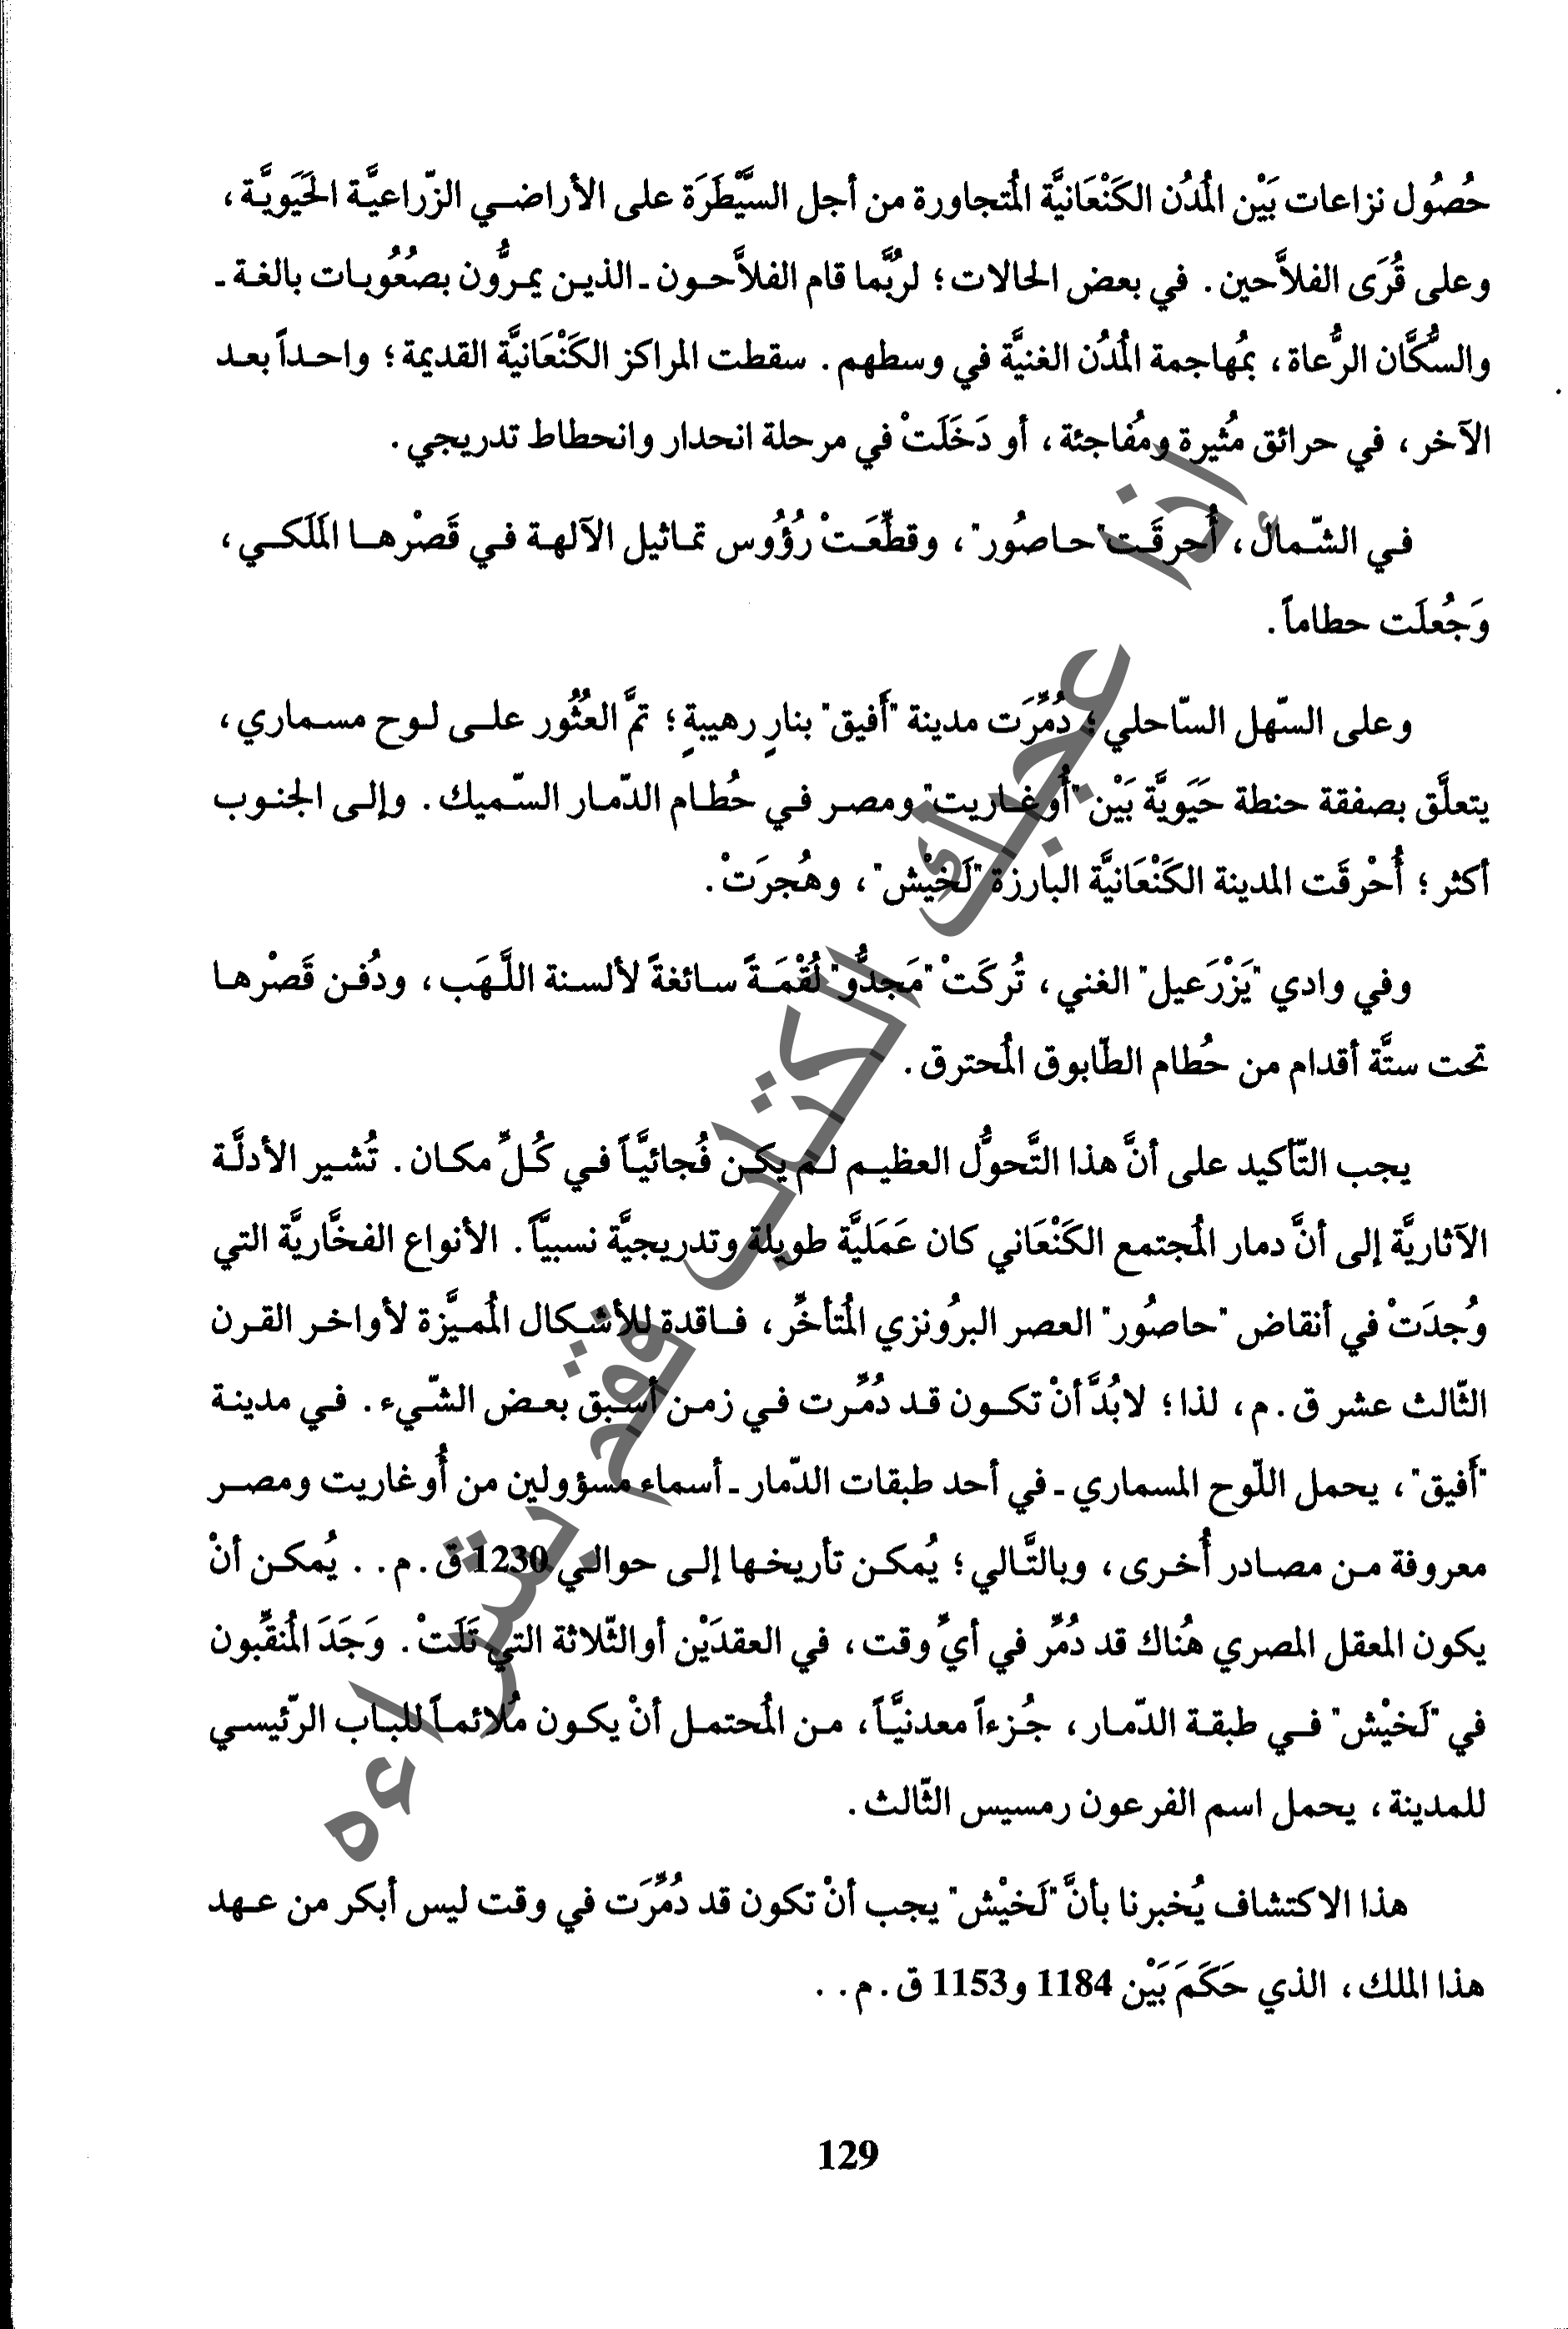 حُصُول نزاعات بَيْن المُدُن الكَنْعَانيَّة المُتجاورة من أجل السَّيْطَرَة على الأراضي الزّراعيَّة الحَيَويَّة،
وعلى قُرَى الفلاَّحين. في بعض الحالات؛ لربُّما قام الفلاَّحون ـ الذين يمرُّون بصُعُوبات بالغة ـ
والسُّكَّان الرُّعاة، بمُهاجمة المُدُن الغنيَّة في وسطهم. سقطت المراكز الكَنْعَانيَّة القديمة؛ واحداً بعد
الآخر، في حرائق مُثيرة ومُفاجئة، أو دَخَلَتْ في مرحلة انحدار وانحطاط تدريجي.
في الشّمال، أُحرقَت "حاصُور"، وقطِّعَتْ رُؤُوس تماثيل الآلهة في قَصْرها المَلَكي،
وَجُعلَت حطاماً.
وعلى السّهل السّاحلي؛ دُمِّرَت مدينة "أَفيق" بنارٍ رهيبةٍ؛ تمَّ العُثُور على لوح مسماري،
يتعلَّق بصفقة حنطة حَيَويَّة بَيْن "أُوغاريت" ومصر في حُطام الدّمار السّميك. وإلى الجنوب
أكثر؛ أُحْرقَت المدينة الكَنْعَانيَّة البارزة "لَخيْش"، وهُجرَتْ.
وفي وادي "يَزْرَعيل" الغني، تُركَتْ "مَجدُّو" لُقْمَةً سائغةً لألسنة اللَّهَب، ودُفن قَصْرها
تحت ستَّة أقدام من حُطام الطّابوق المُحترق.
يجب التّأكيد على أنَّ هذا التَّحوُّل العظيم لم يكن فُجائيَّاً في كُلِّ مكان. تُشير الأدلَّة
الآثاريَّة إلى أنَّ دمار المُجتمع الكَنْعَاني كان عَمَليَّة طويلة وتدريجيَّة نسبيَّاً. الأنواع الفخَّاريَّة التي
وُجدَتْ في أنقاض "حاصُور" العصر البرُونزي المُتأخِّر، فاقدة للأشكال المُميَّزة لأواخر القرن
الثّالث عشر ق.م، لذا؛ لابُدَّ أنْ تكون قد دُمِّرت في زمن أسبق بعض الشّيء. في مدينة
"أَفيق"، يحمل اللّوح المسماري ـ في أحد طبقات الدّمار ـ أسماء مسؤولين من أُوغاريت ومصر
معروفة من مصادر أُخرى، وبالتَّالي؛ يُمكن تأريخها إلى حوالي 1230 ق.م.. يُمكن أنْ
يكون المعقل المصري هُناك قد دُمِّر في أيِّ وقت، في العقدَيْن أوالثّلاثة التي تَلَتْ. وَجَدَ المُنقِّبون
في "لَخيْش" في طبقة الدّمار، جُزءاً معدنيَّاً، من المُحتمل أنْ يكون مُلائماً للباب الرّئيسي
للمدينة، يحمل اسم الفرعون رمسيس الثّالث.
هذا الاكتشاف يُخبرنا بأنَّ "لَخيْش" يجب أنْ تكون قد دُمِّرَت في وقت ليس أبكر من عهد
هذا الملك، الذي حَكَمَ بَيْن 1184 و1153 ق.م..
129
إذا عجبك الكتاب فقد بشراءه